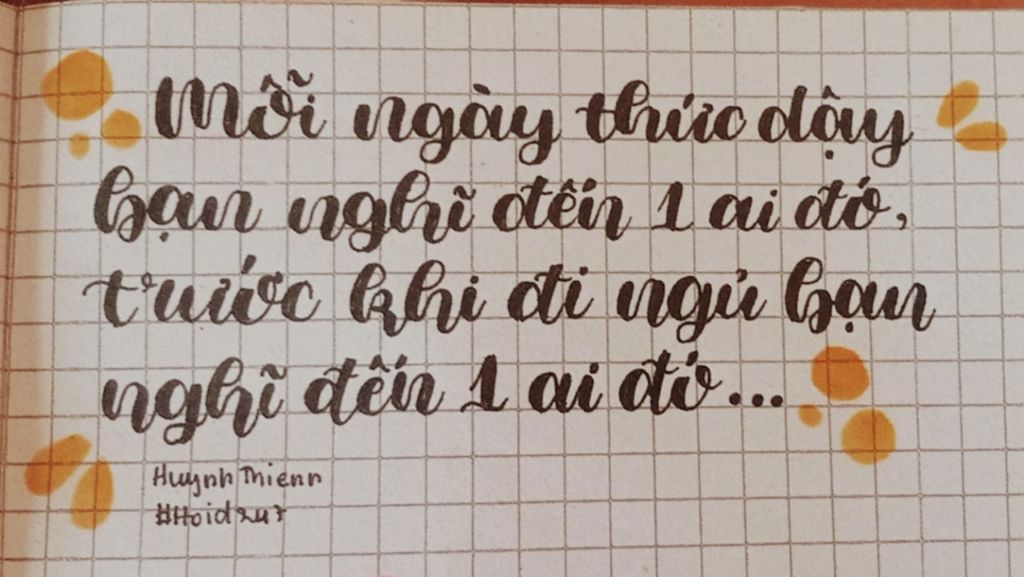 Mỗi ngày thức dậy
bạn nghĩ đến 1 ai đó,
trước khi đi ngủ bạn
nghĩ đến 1 ai đó...
Huynh Thienn